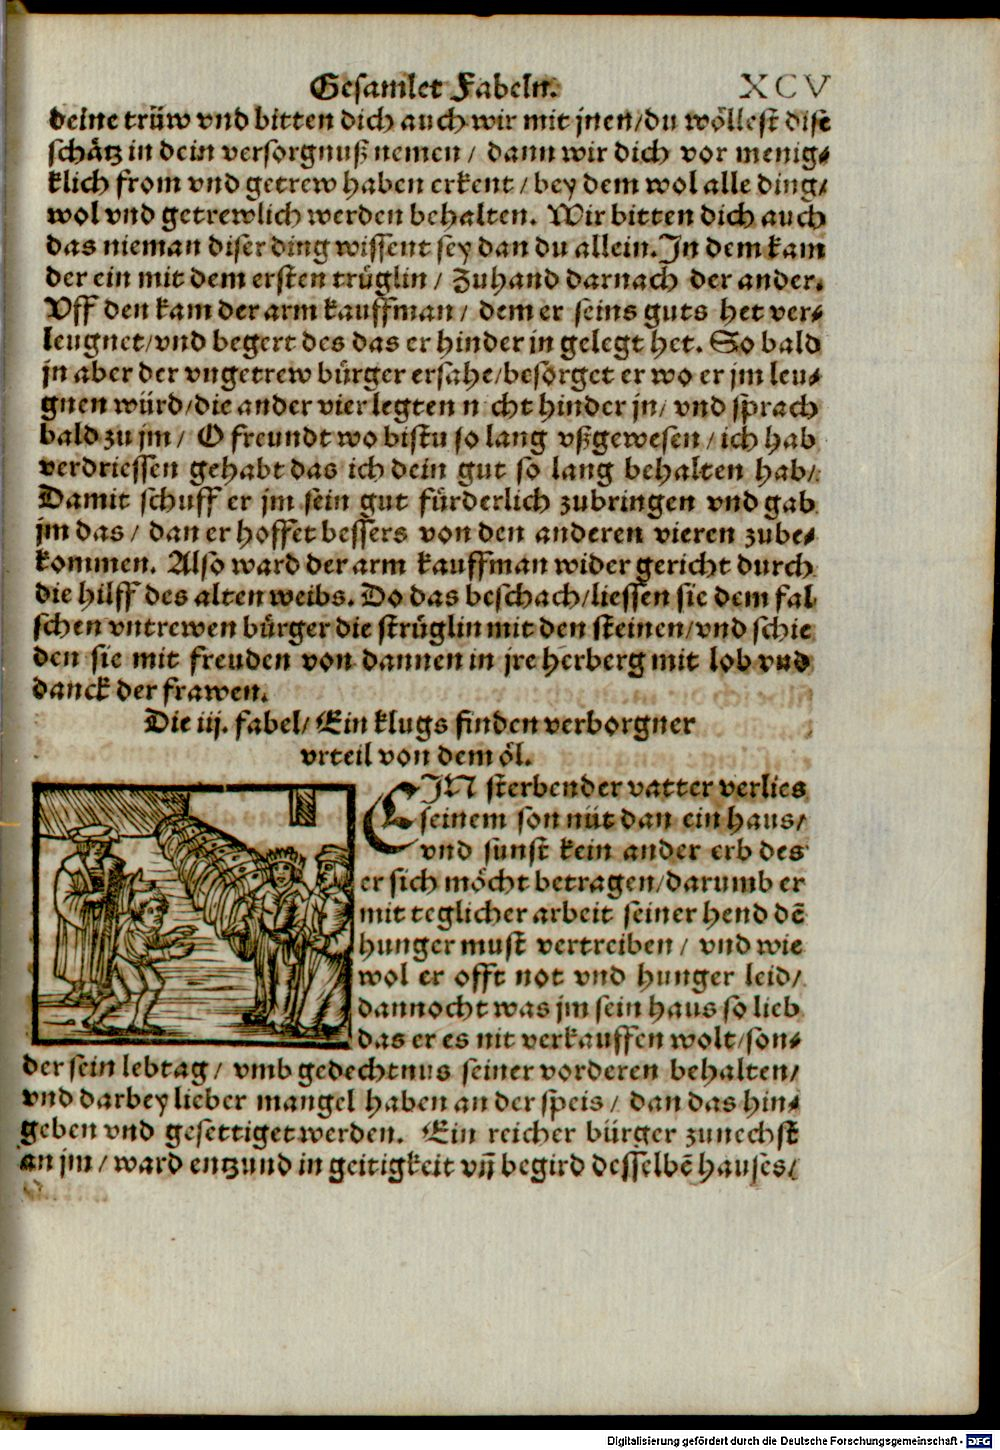 Gesamlet Fabeln. XCV
deine trüw vnd bitten dich auch wir mit jnen/du wöllest dise
schätz in dein versorgnuß nemen/ dann wir dich vor menig⸗
klich from vnd getrew haben erkent/bey dem wol alle ding/
wol vnd getrewlich werden behalten. Wir bitten dich auch
das nieman diser ding wissent sey dan du allein. In dem kam
der ein mit dem ersten trüglin/ Zuhand darnach der ander.
Vff den kam der arm kauffman/ dem er seins guts het ver⸗
leugnet/vnd begert des das er hinder in gelegt het. So bald
jn aber der vngetrew bürger ersahe/besorget er wo er jm leu⸗
gnen würd/die ander vier legten n cht hinder jn/ vnd sprach
bald zu jm/ O freundt wo bistu so lang vßgewesen/ich hab
verdriessen gehabt das ich dein gut so lang behalten hab/
Damit schuff er jm sein gut fürderlich zubringen vnd gab
jm das/ dan er hoffet bessers von den anderen vieren zube⸗
kommen. Also ward der arm kauffman wider gericht durch
die hilff des alten weibs. Do das beschach/liessen sie dem fal
schen vntrewen bürger die strüglin mit den steinen/vnd schie
den sie mit freuden von dannen in jre herberg mit lob vnd
danck der frawen.
Die iij. fabel/ Ein klugs finden verborgner
vrteil von dem öl.
EIN sterbender vatter verlies
seinem son nüt dan ein haus/
vnd sunst kein ander erb des
er sich möcht betragen/darumb er
mit teglicher arbeit seiner hend dē
hunger must vertreiben/ vnd wie
wol er offt not vnd hunger leid/
dannocht was jm sein haus so lieb
das er es nit verkauffen wolt/son⸗
der sein lebtag/ vmb gedechtnus seiner vorderen behalten/
vnd darbey lieber mangel haben an der speis/ dan das hin⸗
geben vnd gesettiget werden. Ein reicher bürger zunechst
an jm/ward entzund in geitigkeit vñ begird desselbē hauses/
Digitalisierung gefördert durch die Deutsche Forschungsgemeinschaft - DFG